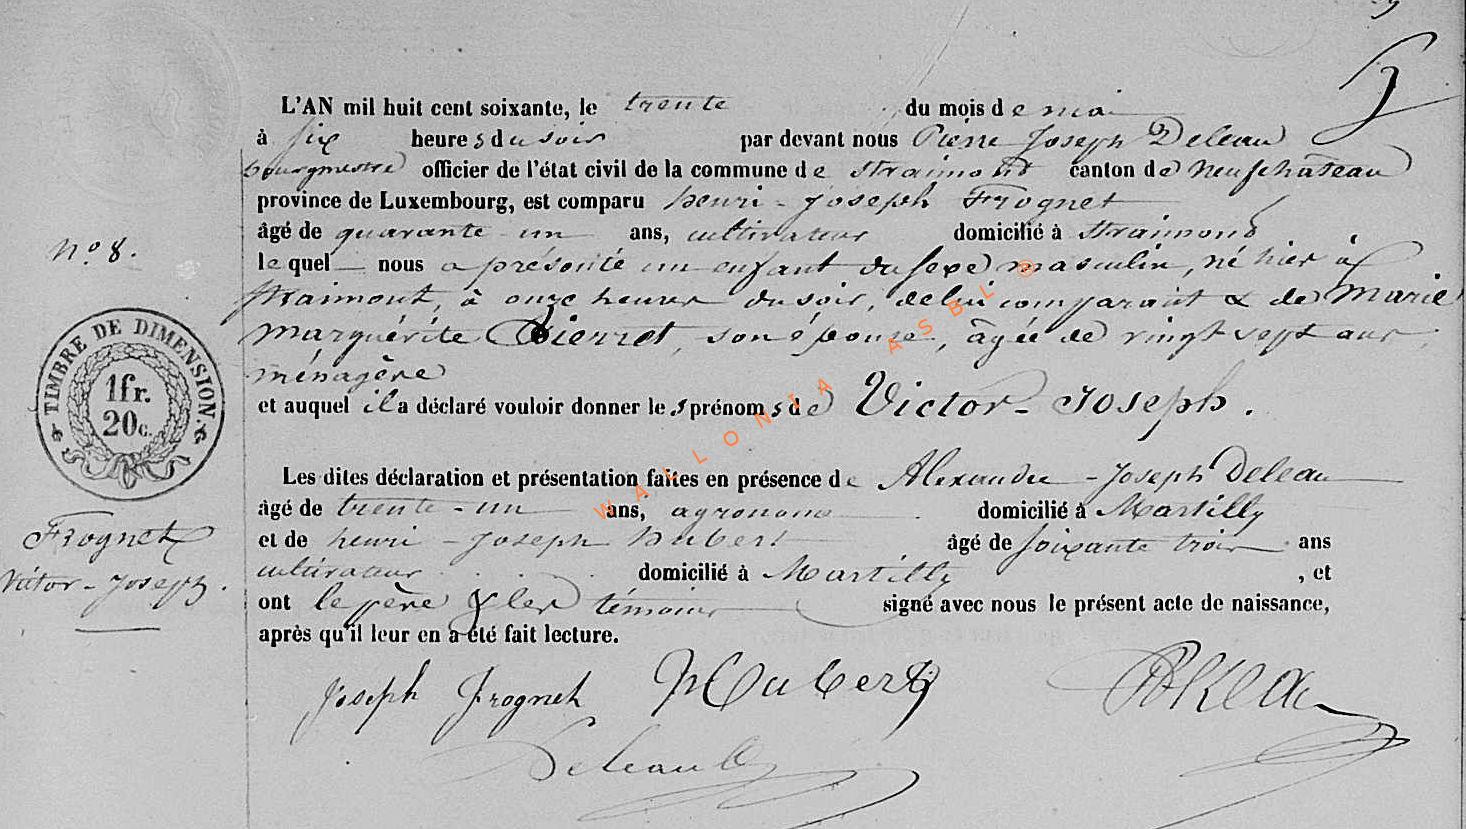 L'AN mil huit cent soixante, le trente du mois de mai
à six heures du soir par devant nous Pierre Joseph Deleau
bourgmestre officier de l'état civil de la commune de Straimont canton de Neufchateau
province de Luxembourg, est comparu henri - Joseph Frognet
âgé de quarante - un ans, cultivateur domicilié à Straimont
le quel nous a présenté un enfant du sexe masculin, né hier à
Straimont, à onze heures du soir, de lui comparant & de Marie
Marguérite Pierret, son épouse, âgée de vingt sept ans,
ménagère
et auquel il a déclaré vouloir donner les prénoms de Victor - Joseph.
Les dites déclaration et présentation faites en présence de Alexandre - Joseph Deleau
âgé de trente - un ans, agronome domicilié à Martilly
et de henri - Joseph Hubert âgé de soixante trois ans
cultivateur domicilié à Martilly , et
ont le père & les témoins signé avec nous le présent acte de naissance,
après qu'il leur en a été fait lecture.
Joseph Frognet Hubert
Deleau
N° 8.
TIMBRE DE DIMENSION.
1fr.
20c.
Frognet
Victor - Joseph.
WALLONIA ASBL ©